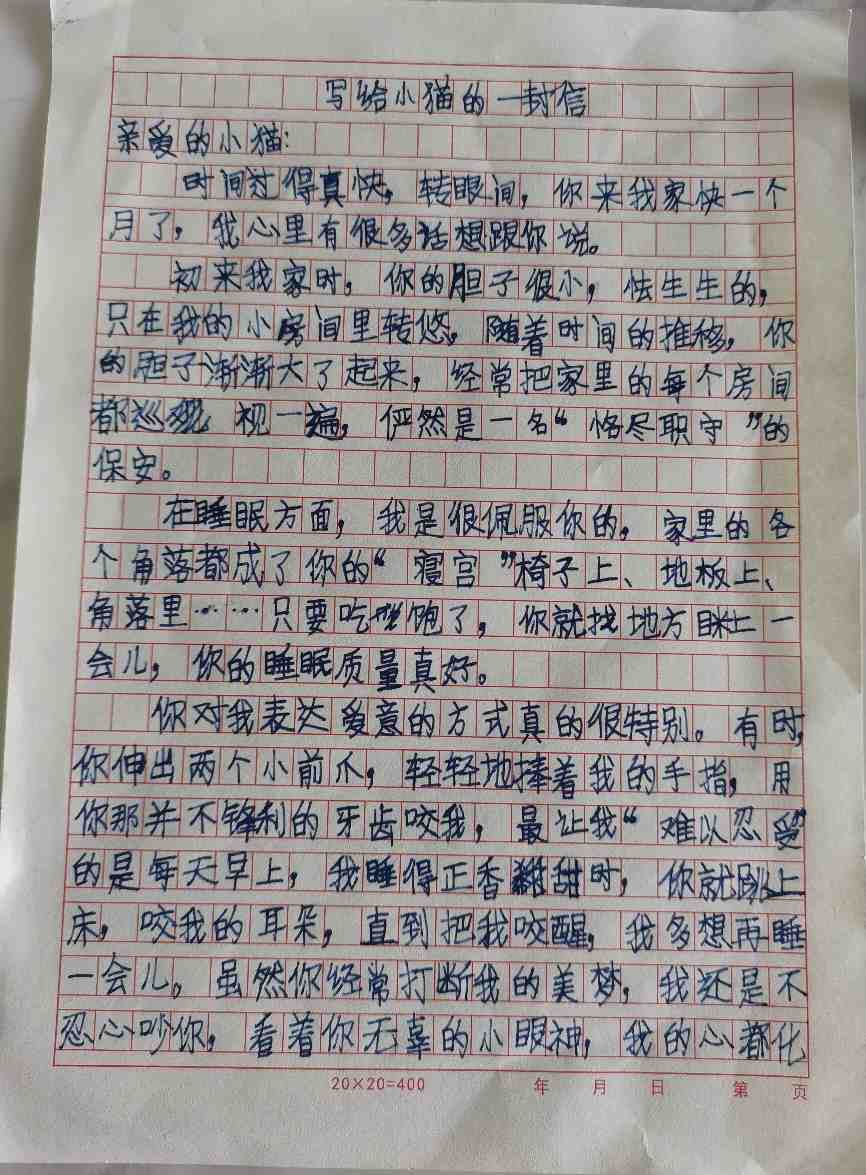 写给小猫的一封信
亲爱的小猫:
时间过得真快，转眼间，你来我家快一个
月了，我心里有很多话想跟你说。
初来我家时，你的胆子很小，怯生生的，
只在我的小房间里转悠，随着时间的推移，你
的胆子渐渐大了起来，经常把家里的每个房间
都巡视一遍，俨然是一名“恪尽职守”的
保安。
在睡眠方面，我是很佩服你的，家里的各
个角落都成了你的“寝宫”椅子上、地板上、
角落里……只要吃饱了，你就找地方眯上一
会儿，你的睡眠质量真好。
你对我表达爱意的方式真的很特别。有时，
你伸出两个小前爪，轻轻地捧着我的手指，用
你那并不锋利的牙齿咬我，最让我“难以忍受”
的是每天早上，我睡得正香甜时，你就跳上
床，咬我的耳朵，直到把我咬醒，我多想再睡
一会儿。虽然你经常打断我的美梦，我还是不
忍心吵你，看着你无辜的小眼神，我的心都化
20×20=400 年 月 日 第 页